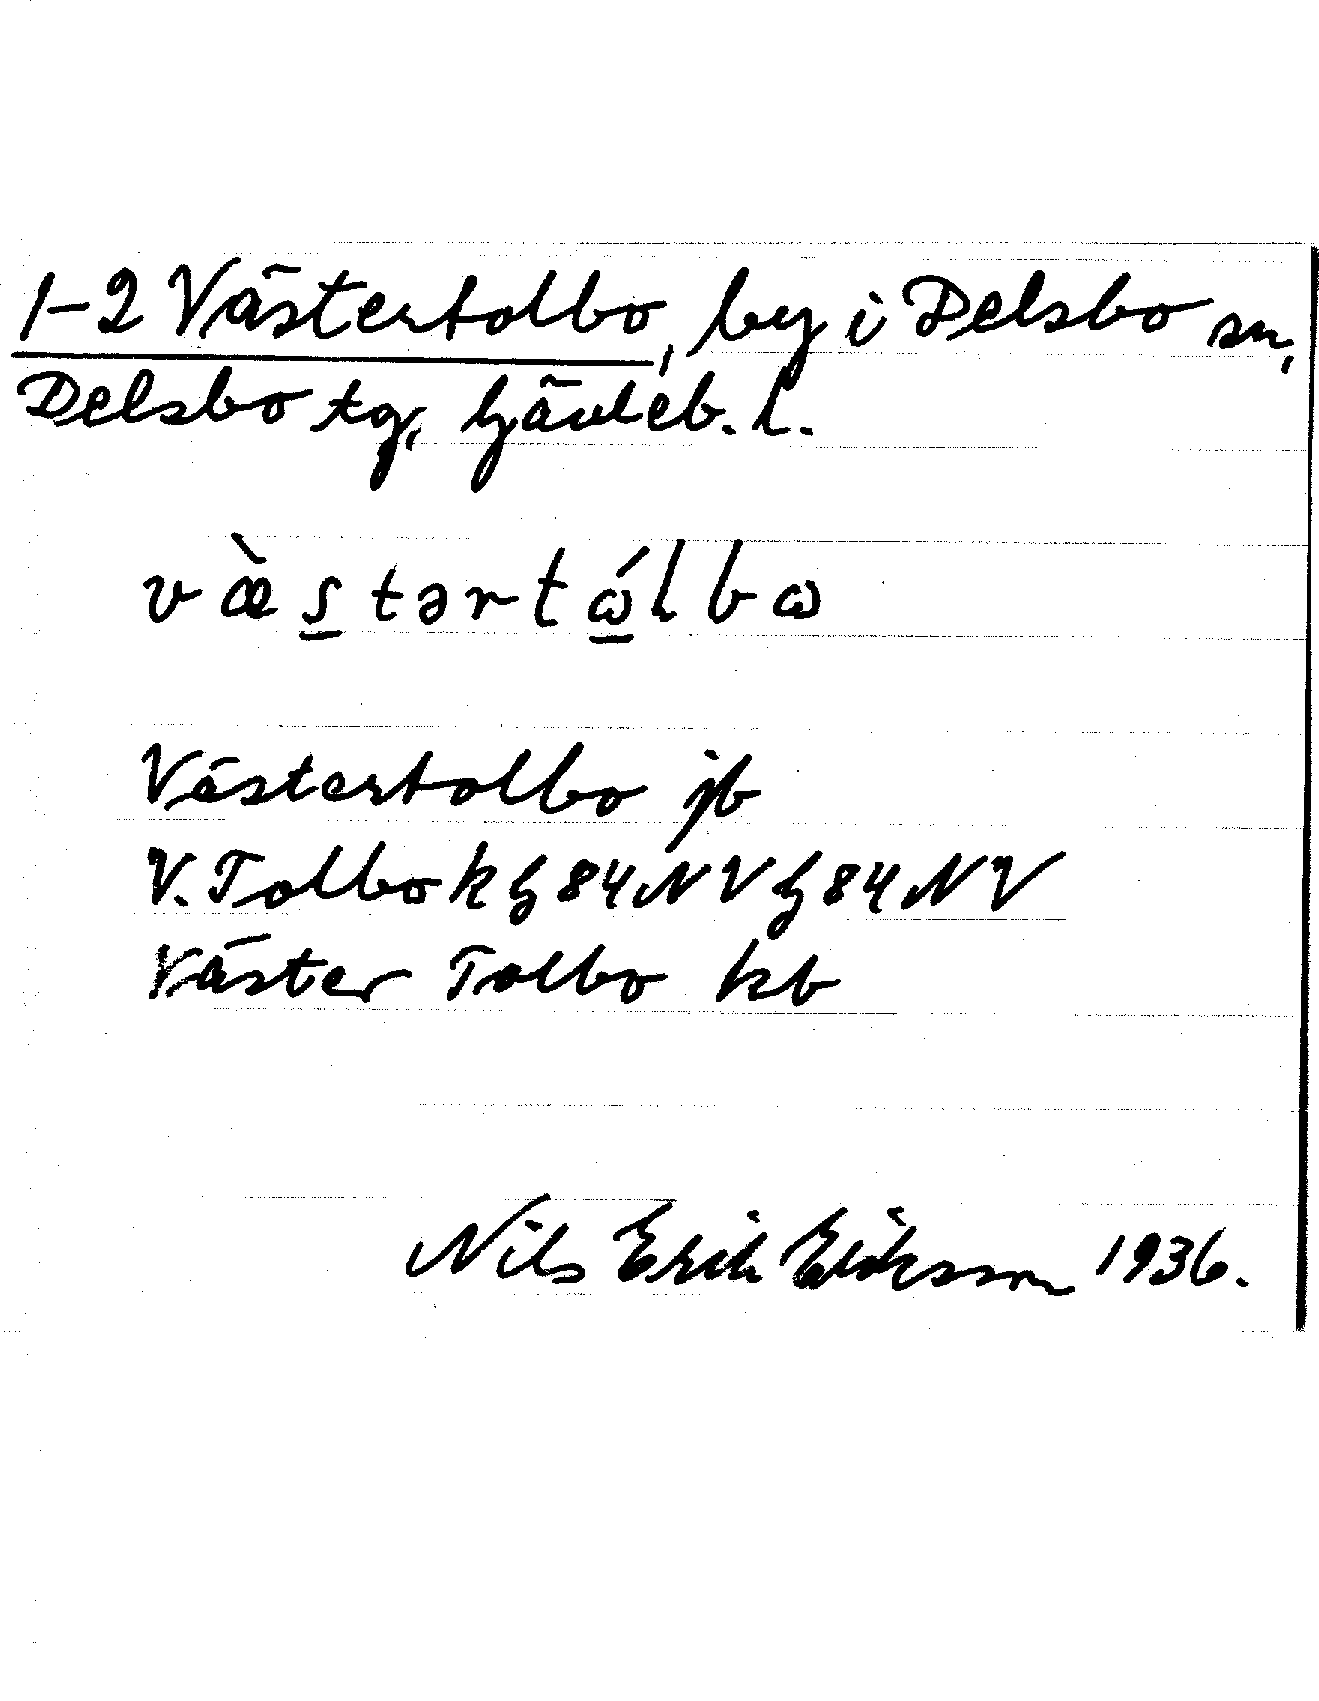 1-2 Västertolbo, by i Delsbo sn,
Delsbo tg, Gävleb. l.
væ̀s̲tərtώ̲lbω
Västertolbo jb
V. Tolbo k G 84 NV G 84 NV
Väster Tolbo kb
Nils Erik Eriksson 1936.